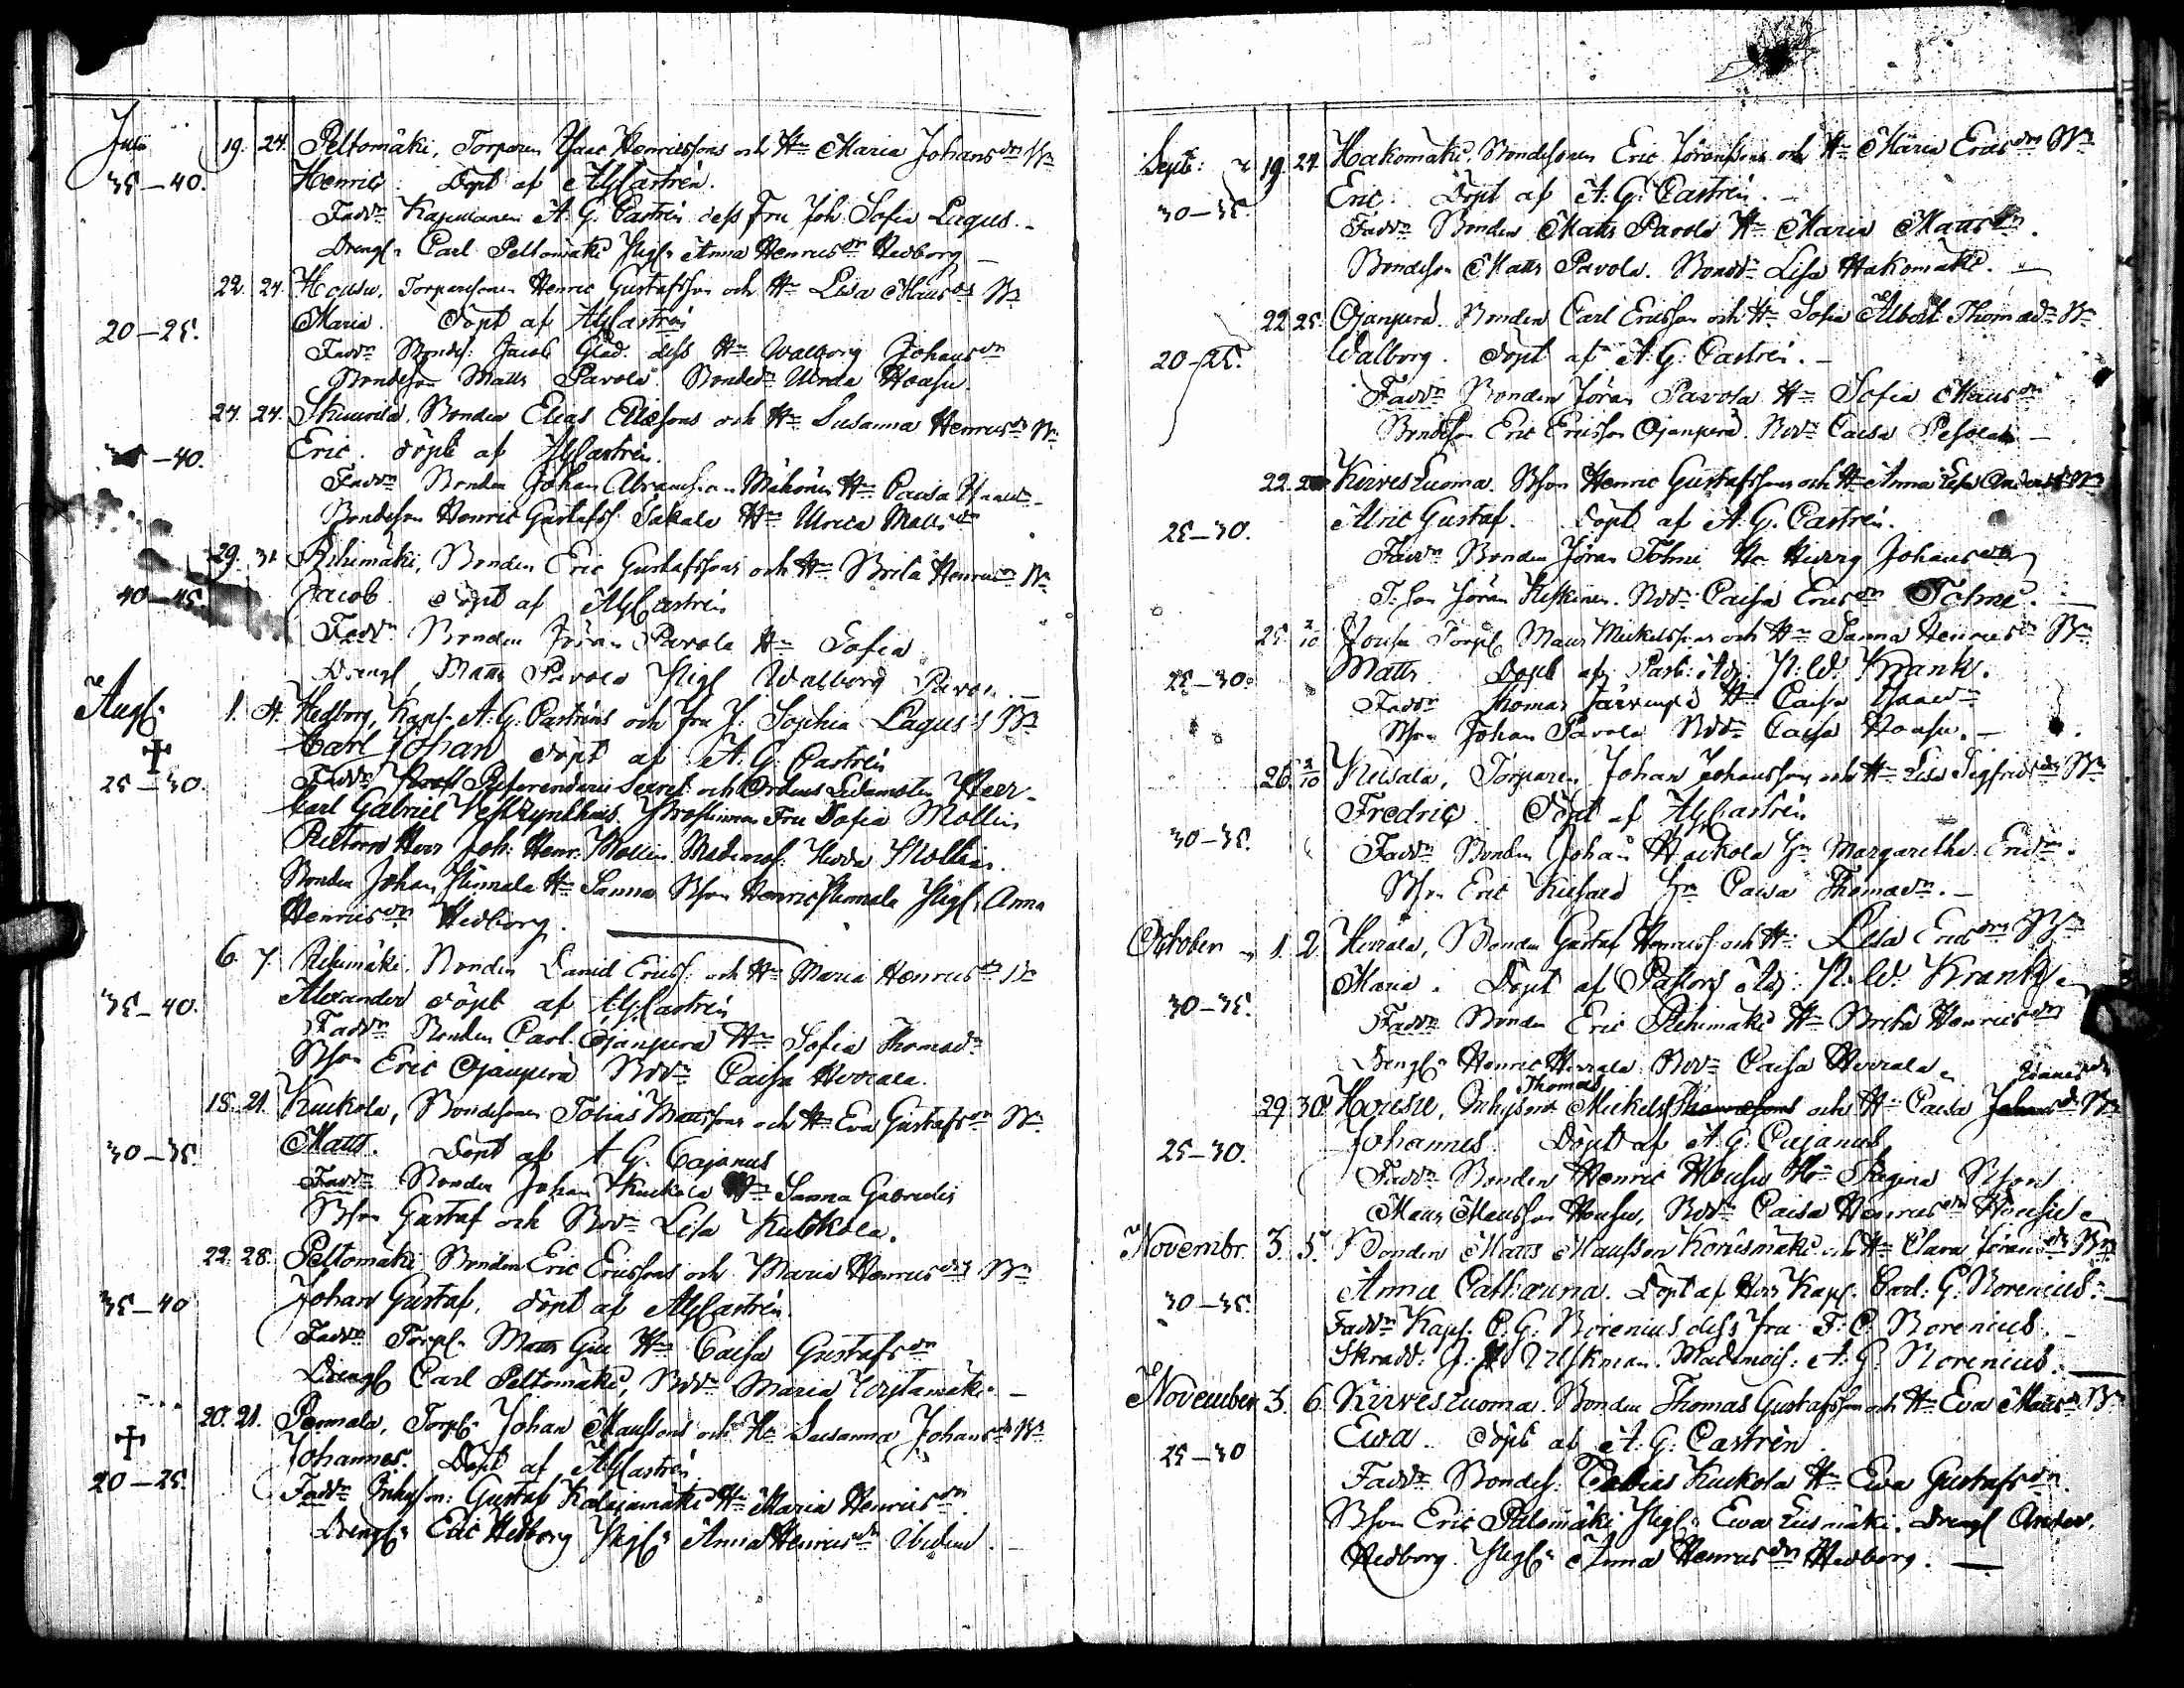 Julii 19. 24. Peltomäki, Torparen Isaac Henricssons och Hu Maria Johansdrs Bn
35-40. Henric. Döpt af AGCastrén.
Faddr Kapellanen A. G. Castrén dess Fru Joh. Sofia Lagus.
Drengl. Carl Peltomäki Pigl. Anna Henricsdr Hedborg
22. 24. Housu, Torparesonen Henric Gustafsson och Hu Lisa Mansdrs Bn
20-25. Maria. Döpt af AGCastrén
Faddr Bondes. Jacob Glad. dess Hu Walborg Johansdr
Bondeson Matts Pavola. Bondedr Ulrica Housu.
24. 24. Bonden Elias Eliæsons och Hu Susanna Henricsdrs Bn
-40. Eric. döpt af AGCastrén.
Faddr Bonden Johan Abramsson Mähönen Hu Caisa Isaacsdr
Bondeson Henric Gustafss. Sakala Hu Ulrica Mattsdr
29. 31 Rihimäki, Bonden Eric Gustafssons och Hu Brita Henricsdrs Bn
40-45. Jacob. döpt af AGCastrén
Faddr Bonden Jöran Pavola Hu Sofia
Drengl. Matts Pavola Pigl. Walborg Pavola.
Aug: 1. 4. Hedborg, Kapl. A. G. Castréns och Fru J. Sophia Lagus's Bn
Carl Johan döpt af A. G. Castrén
25-30. Faddr Referendarie Secret. och Ordens Ledamoten Herr
Carl Gabriel Prostinnan Fru Sofia Mollin
Rectorn Herr Joh: Henr: Mollin Mademois: Hedda Mollin.
Bonden Johan Hu Sanna Bson Henric Pigl. Anna
Henricsdr Hedborg.
6. 7. Rihimäki. Bonden Daniel Ericss. och Hu Maria Henricsdrs Bn
35-40. Alexander döpt af AGCastrén
Faddr Bonden Carl Ojanperä Hu Sofia Thomasdr
Bson Eric Ojanperä Bdr Caisa Herrala.
18. 21. Kuckola, Bondesonen Tobias Mattssons och Hu Eva Gustafsdrs Bn.
30-35. Matts. Döpt af A G. Cajanus
Faddr Bonden Johan Kuckola Hu Sanna Gabrielsdr
Bson Gustaf och Bdr Lisa Kuckola.
22. 28. Peltomäki Bonden Eric Ericssons och Maria Henricsdrs Bn
35-40 Johan Gustaf. döpt af AGCastrén.
Faddr Torpl. Matts Hu Caisa Gustafsdr
Drengl Carl Peltomäki, Bdr Maria
20. 21. Pennala, Torpl. Johan Manssons och Hu Susanna Johansdrs Bn
20-25. Johannes. Döpt af AGCastrén
Faddr Inhyson: Gustaf Kalajamäki Hu Maria Henricsdr
Drengl. Eric Hedborg Pigl. Anna Henricsdr ibidem.
Septb: 19. 24. Hakomäki. Bondesonen Eric Jöranssons och Hu Maria Ericsdrs Bn
30-35. Eric. Döpt af A. G. Castrén.
Faddr Bonden Matts Pavola Hu Maria Mattsdr.
Bondeson Matts Pavola. Bondedr Lisa Hakomäki.
22. 25. Ojanperä. Bonden Carl Ericsson och Hu Sofia Albert. Thomædr Bn
20-25. Walborg. döpt af A. G. Castrén.
Faddr Bonden Jöran Pavola Hu Sofia Mansdr
Bondeson Eric Ericsson Ojanperä. Bdr Caisa Pesola
22. Kirvesluoma. Bson Henric Gustafssons och Hu Anna Lisa Bn
25-30. Alric Gustaf. Döpt af A. G. Castrén.
Faddr Bonden Jöran Tohni Hu Hedvig Johansdr
T. son Jöran Heskinen. Bdr Caisa Ericsdr Tohni.
25. 2/10 Housu Torpl Mans Mickelssons och Hu Sanna Henricsdrs Bn
25-30. Matts. Döpt af Past: Adj: N. W. Krank.
Faddr Thomas Järvenpä Hu Caisa Isaacsdr
Bson Johan Pavola Bdr Caisa Housu.
26. 2/10 Torparen Johan Johanssons och Hu Lisa Sigfridsdrs Bn
Fredric. Döpt af AGCastrén
30-35. Faddr Bonden Johan Kuckola Hu Margaretha Ericsdr.
Bson Eric Hu Caisa Thomædr.
October 1. 2. Herrala, Bonden Gustaf Henricss. och Hu Lisa Ericsdrs Bn
30-35. Maria. Döpt af Pastors Adj: N. W. Krank
Faddr Bonden Eric Rihimäki Hu Brita Henricsdr
Drengl. Henric Herrala Bdr Caisa Herrala
29. 30 Housu, Inhysons Mickels Thomas och Hu Caisa Bn
25-30. Johannes. Döpt af A. G. Cajanus
Faddr Bonden Henric Housu Hu Regina Bson
Mans Mansson Housu, Bdr Caisa Henricsdr Housu
Novembr. 3. 5. Bonden Matts Mansson Korkismäki och Hu Clara Jöransdrs Bn
30-35. Anna Catharina. Döpt af Herr Kapl. Carl. G. Borenius.
Faddr Kapl. C. G. Borenius dess Fru F. C. Borenius.
Skradd. J. Ulskman. Mademois: A. G. Borenius.
November 3. 6. Kirvesluoma. Bonden Thomas Gustafsson och Hu Eva Mattsdr Bn
25-30 Ewa. döpt af A. G. Castrén
Faddr Bondes. Tobias Kuckola Hu Ewa Gustafsdr.
Bson Eric Peltomäki Pigl. Ewa Drengl Anders
Hedborg. Pigl. Anna Henricsdr Hedborg.